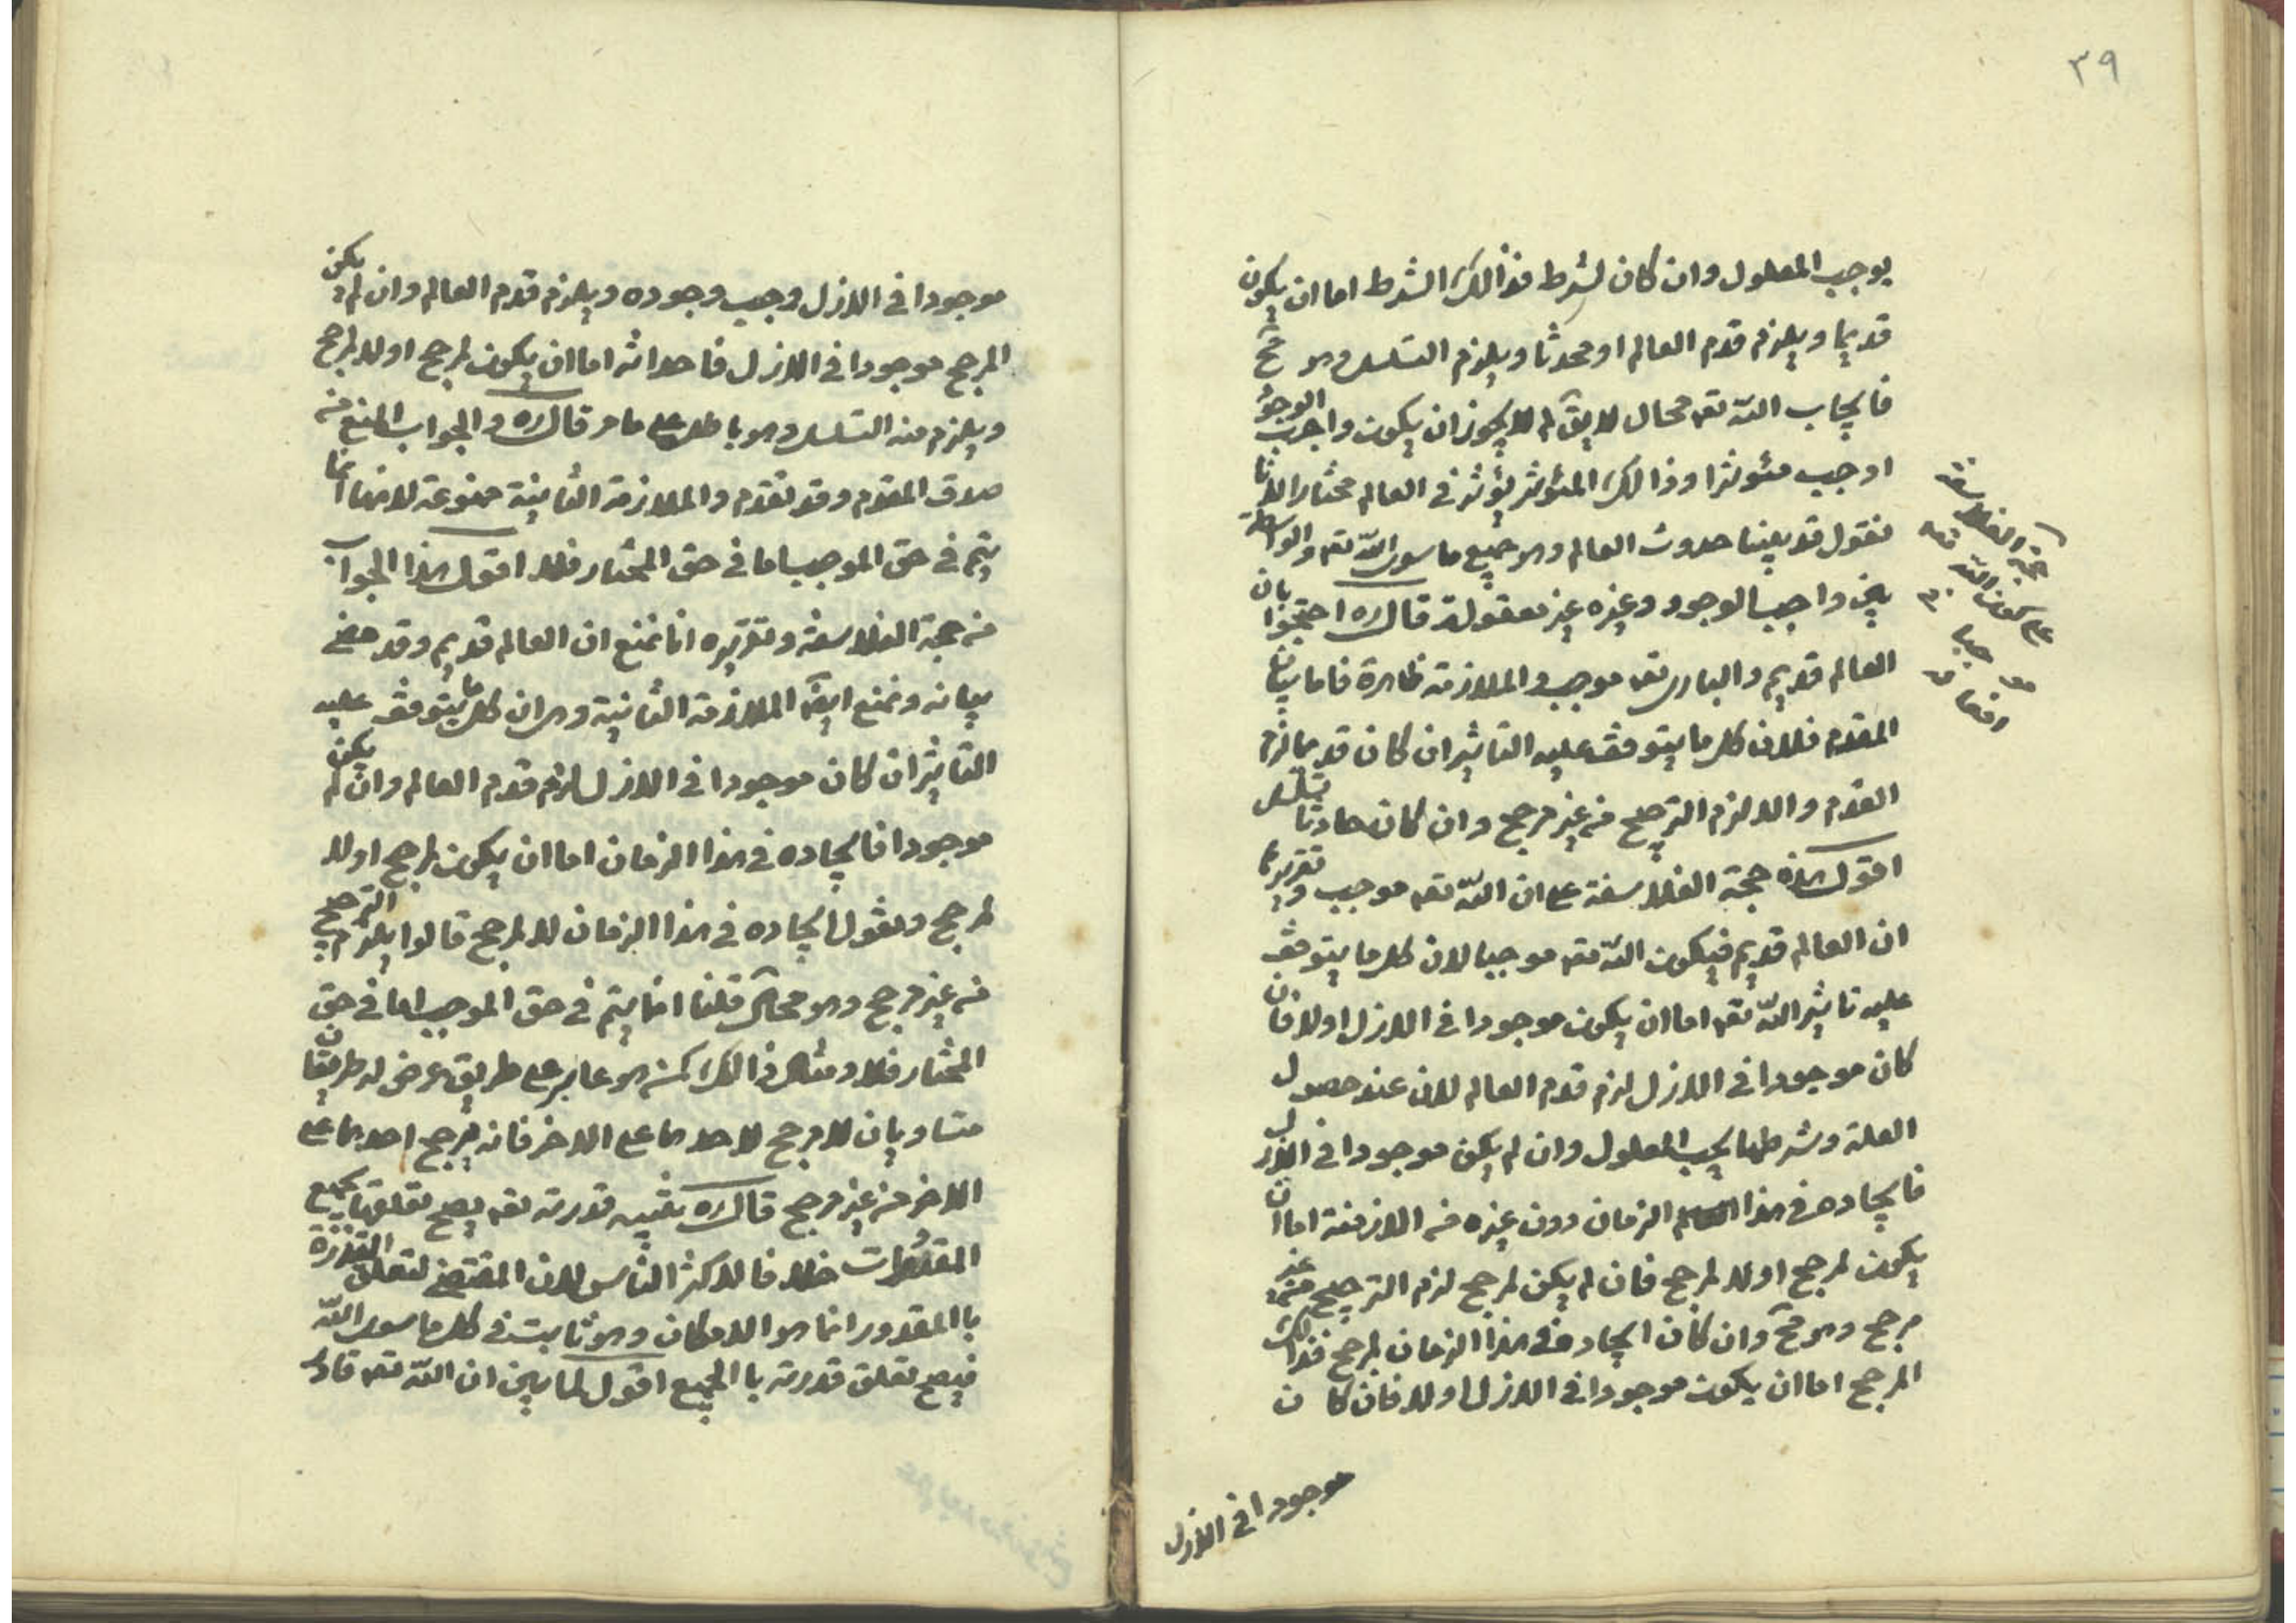 ٣٩
يوجب المعلول وان كان لشرط فذالك الشرط اما ان يكون
قديما ويلزم قدم العالم او محدثا ويلزم التسلسل وهو مح
فايجاب الله تعه محال لا يقال لم لا يجوز ان يكون واجب الوجود
اوجب مئوثرا وذالك المئوثر يؤثر في العالم مختارا لانا
نقول قد بينا حدوث العالم وهو جميع ما سوى الله تعه والواسطة
بين واجب الوجود وغيره غير معقولة قال ره احتجوا بان
العالم قديم والبارى تعه موجب والملازمة ظاهرة فاما بيان
المقدم فلان كلما يتوقف عليه التاثير ان كان قديما لزم
القدم والا لزم الترجيح من غير مرجح وان كان حادثا تسلسل
اقول هذه حجة الفلاسفة على ان الله تعه موجب وتقريرها
ان العالم قديم فيكون الله تعه موجبا لان كلما يتوقف
عليه تاثير الله تعه اما ان يكون موجودا في الازل اولا فان
كان موجودا في الازل لزم قدم العالم لان عند حصول
العلة وشرطها يجب المعلول وان لم يكن موجودا في الازل
فايجاده في هذا الزمان دون غيره من الازمنة اما ان
يكون لمرجح اولا لمرجح فان لم يكن لمرجح لزم الترجيح من غير
مرجح وهو مح وان كان ايجاده في هذا الزمان لمرجح فذالك
المرجح اما ان يكون موجودا في الازل اولا فان كان
موجودا في الازل
حجة الفلاسفة
على كون الله تعه
موجبا
موجودا في الازل وجب وجوده ويلزم قدم العالم وان لم يكن
المرجح موجودا في الازل فاحداثه اما ان يكون لمرجح اولا لمرجح
ويلزم منه التسلسل وهو باطل على ما مر قال ره والجواب المنع من
صدق المقدم وقد تقدم والملازمة الثانية ممنوعة لانها انما
يتم في حق الموجب اما في حق المختار فلا اقول هذا الجواب
من حجة الفلاسفة وتقريره انا نمنع ان العالم قديم وقد مضى
بيانه ونمنع ايضا الملازمة الثانية وهي ان كل ما يتوقف عليه
التاثير ان كان موجودا في الازل لزم قدم العالم وان لم يكن
موجودا فايجاده في هذا الزمان اما ان يكون لمرجح اولا
لمرجح ونقول ايجاده في هذا الزمان لا لمرجح قالوا يلزم الترجيح
من غير مرجح وهو محال قلنا انما يتم في حق الموجب اما في حق
المختار فلا ومثال ذالك كمن هو عابر على طريق عرض له طريقان
متساويان لا مرجح لاحدهما على الاخر فانه يرجح احدهما على
الاخر من غير مرجح قال ره تنبيه قدرته تعه يصح تعلقها بجميع
المقدورات خلافا لاكثر الناس لان المقتضى لتعلق القدرة
باالمقدور انما هو الامكان وهو ثابت في كل ما سوى الله
فيصح تعلق قدرته باالجميع اقول لما بين ان الله تعه قادر